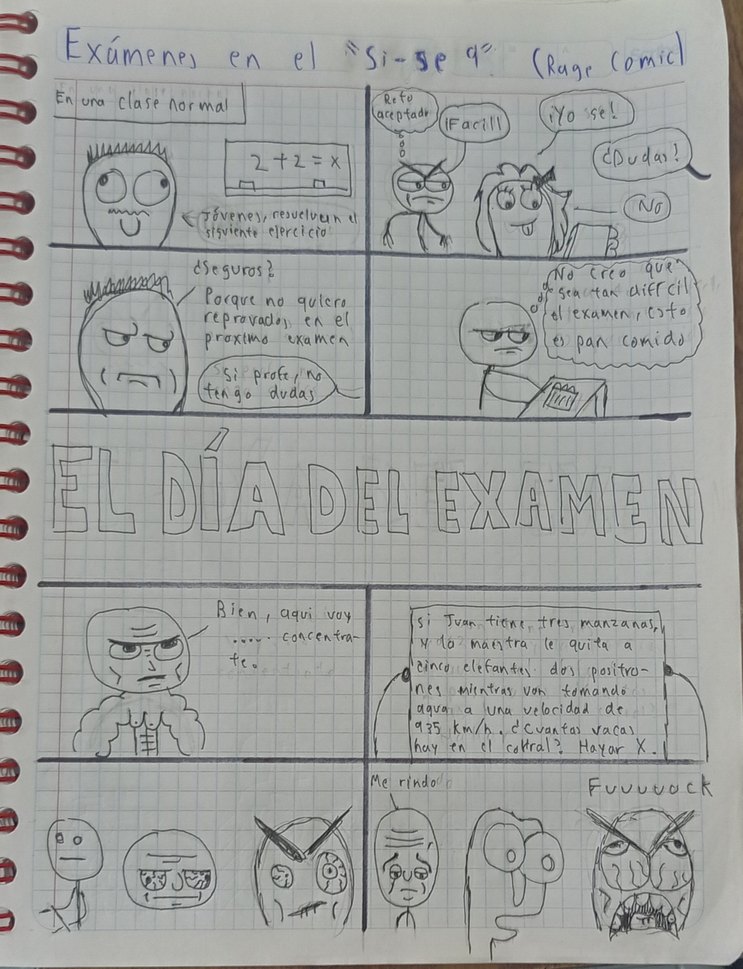 Exámenes en el "Si-se 9" (Rage Comic)
En una clase normal
2+2=x
Jóvenes, resuelvan el
siguiente ejercicio
Reto
aceptado
¡Facil!
¡Yo se!
¿Dudas?
No
¿Seguros?
Porque no quiero
reprovados en el
proximo examen
Si profe, no
tengo dudas
No creo que
sea tan difícil
el examen, esto
es pan comido
EL DÍA DEL EXAMEN
Bien, aqui voy
..... concentra-
te.
Si Juan tiene tres manzanas,
y la maestra le quita a
cinco elefantes dos positro-
nes mientras van tomando
agua a una velocidad de
935 km/h. ¿Cuantas vacas
hay en el corral? Hayar X.
Me rindo
Fuuuuuck